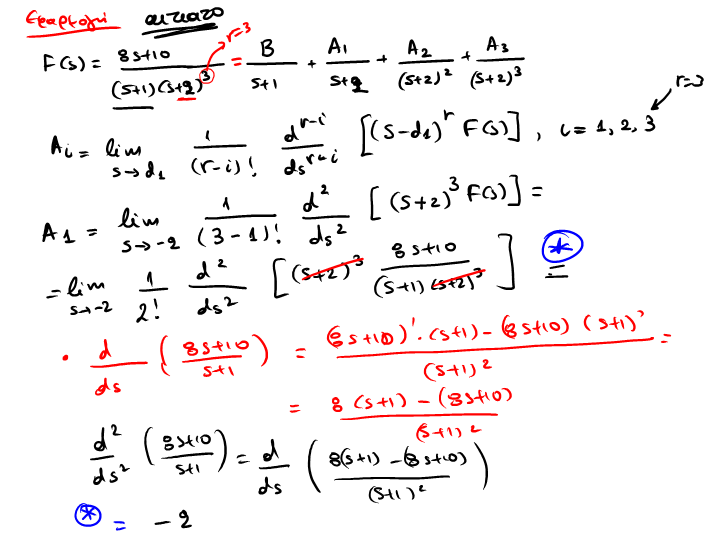 r=3
F(s) = 8s+10 / (s+1)(s+2)^3 = B / s+1 + A1 / s+2 + A2 / (s+2)^2 + A3 / (s+2)^3
r=3
Ai = lim s→d1 1 / (r-i)! d^r-i / ds^r-i [(s-d1)^r F(s)] , i = 1, 2, 3
A1 = lim s→-2 1 / (3-1)! d^2 / ds^2 [(s+2)^3 F(s)] =
= lim s→-2 1 / 2! d^2 / ds^2 [(s+2)^3 8s+10 / (s+1)(s+2)^3] * =
• d / ds ( 8s+10 / s+1 ) = (8s+10)' · (s+1) - (8s+10) (s+1)' / (s+1)^2 =
= 8(s+1) - (8s+10) / (s+1)^2
d^2 / ds^2 ( 8s+10 / s+1 ) = d / ds ( 8(s+1) - (8s+10) / (s+1)^2 )
* = -2